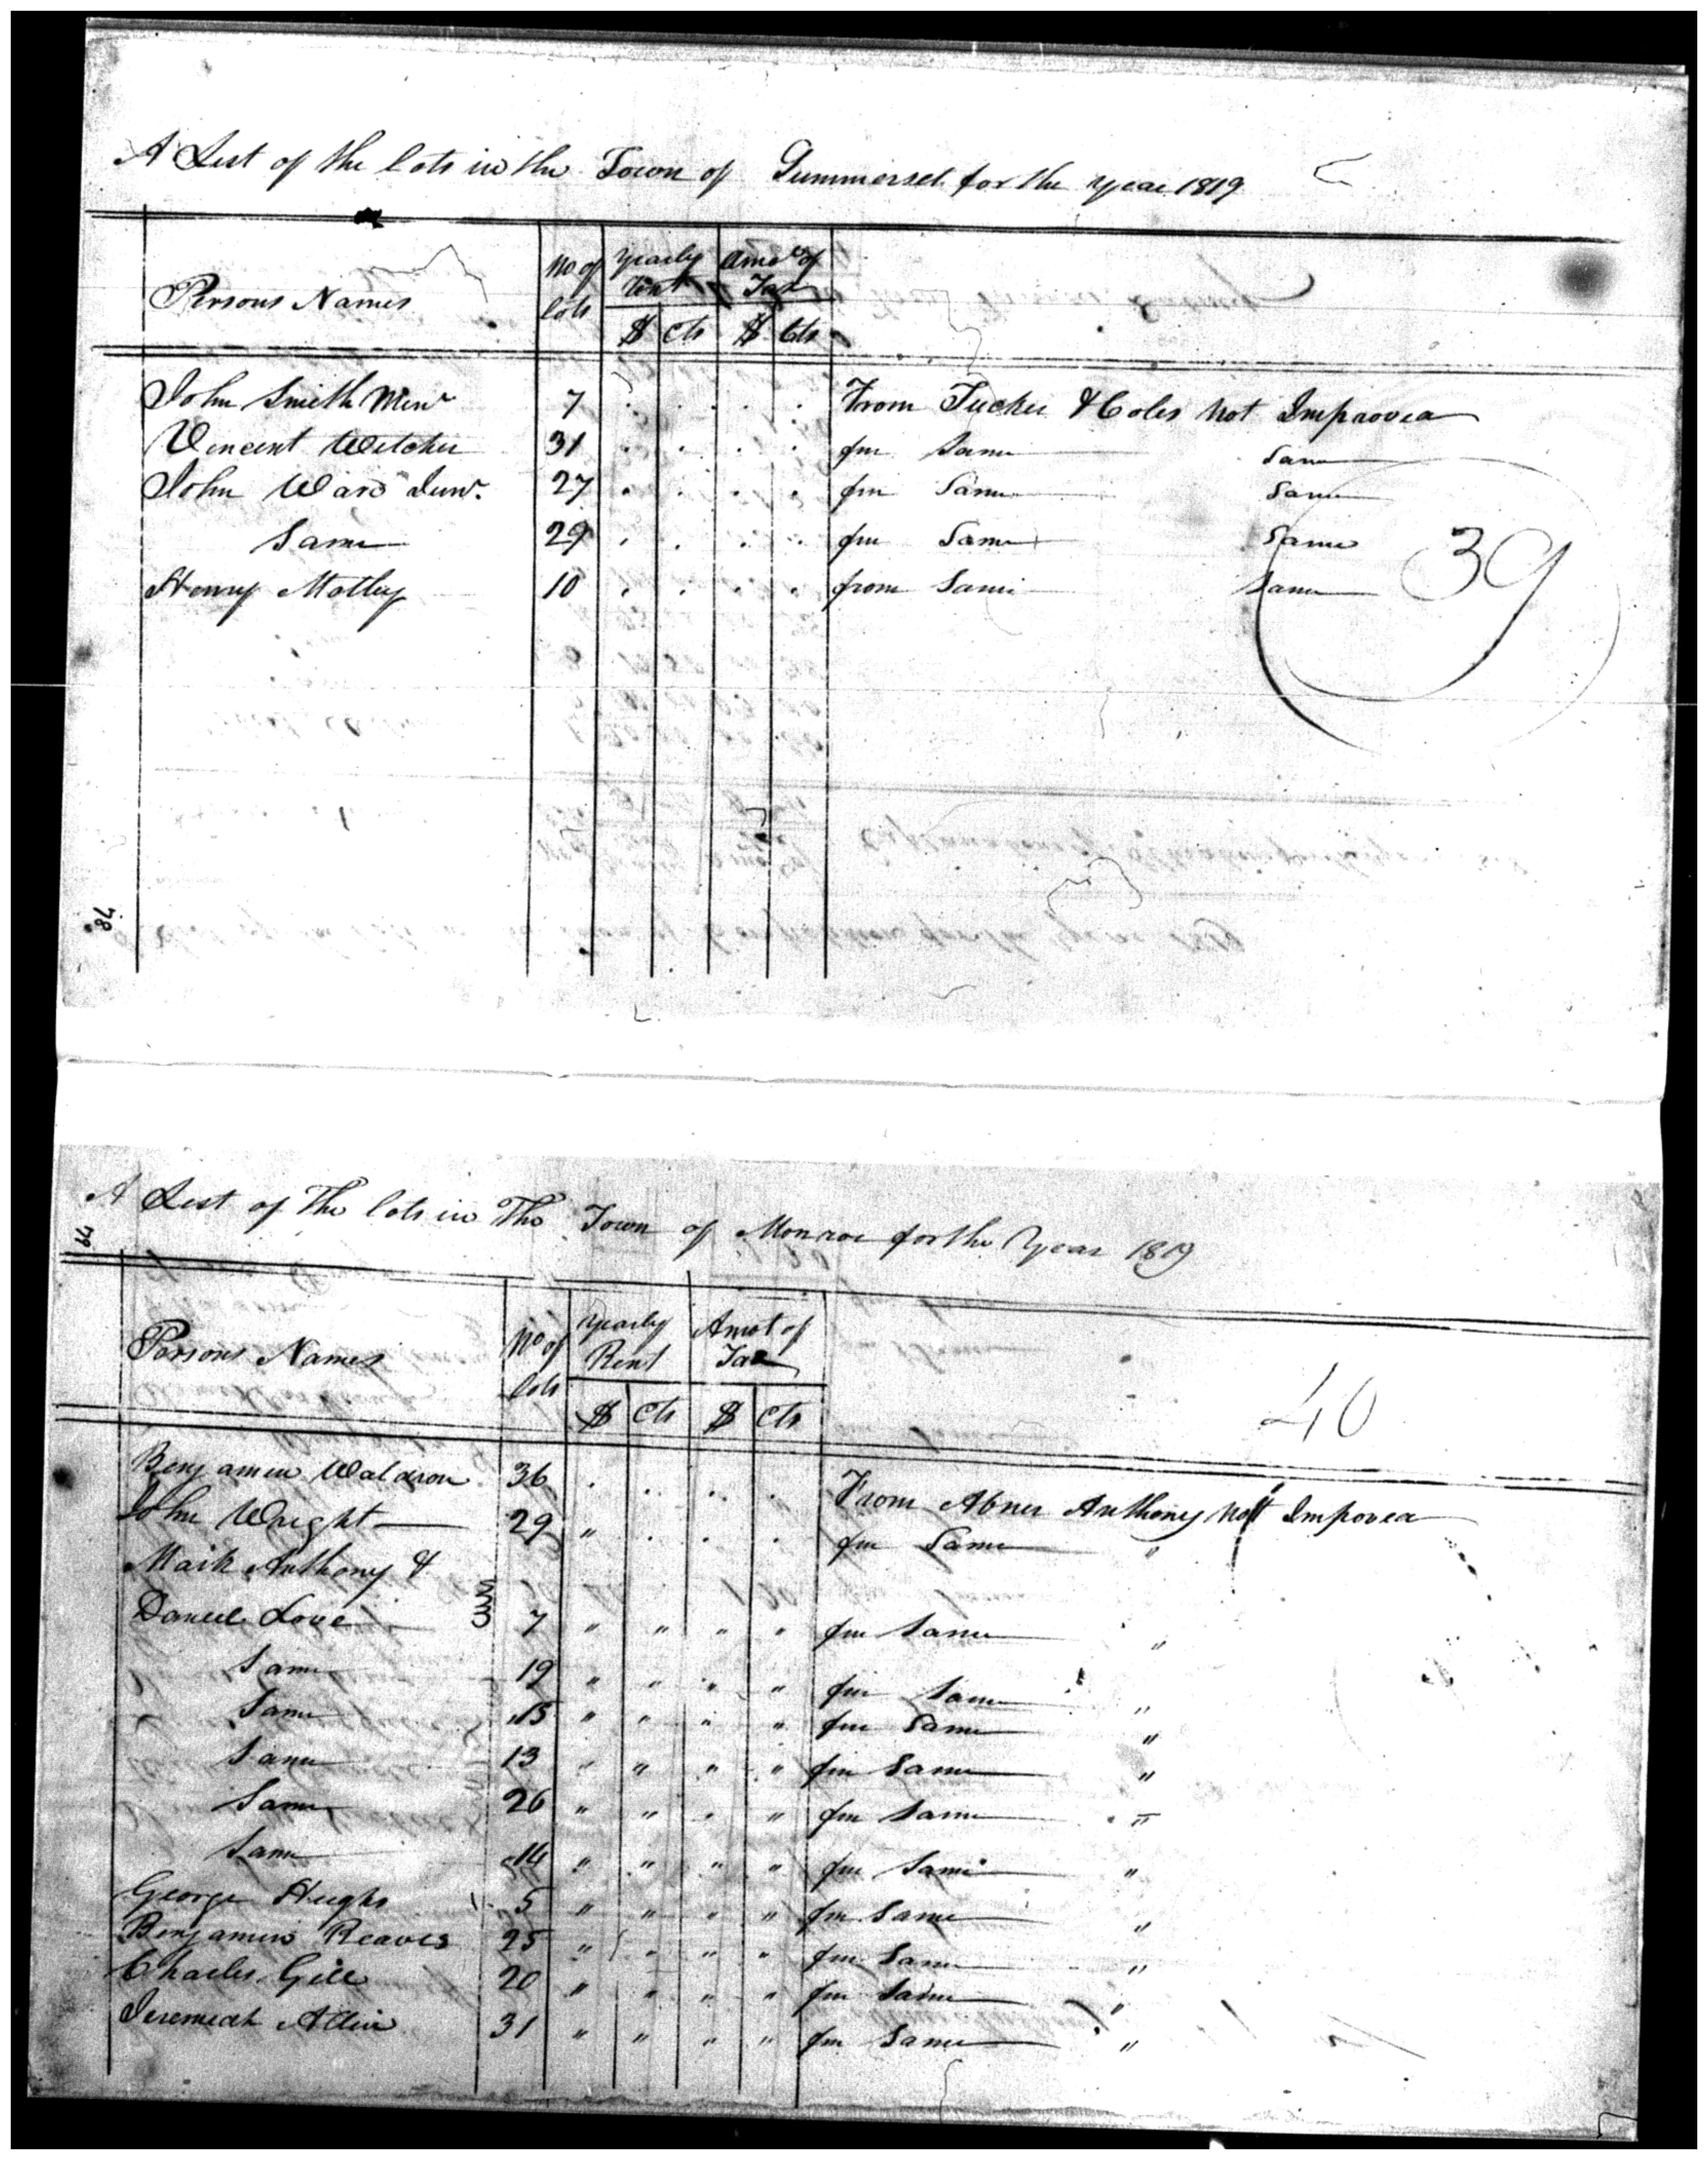 A List of the lots in the Town of Summerset for the year 1819
Persons Names No of lots Yearly Rent Amot of Tax
$ Cts $ Cts
John Smith Minr 7 From Tucker & Coles not Improved
Vincent Witcher 31 fm Same Same
John Ward Junr. 27 fm Same Same
Same 29 fm Same Same
Henry Motley 10 from Same Same
39
84
A List of The lots in The Town of Monroe for the Year 1819
Persons Names No of lots Yearly Rent Amot of Tax
40
$ Cts $ Cts
Benjamin Waldron 36 From Abner Anthony not Impoved
John Wright 29 " fm Same "
Mark Anthony &
Daniel Love 7 " " " " fm Same "
Same 19 " " " " fm Same "
Same 15 " " " " fm Same "
Same 13 " " " " fm Same "
Same 26 " " " " fm Same "
Same 14 " " " " fm Same "
George Hughs 5 " " " " fm Same "
Benjamin Reaves 25 " " " " fm Same "
Charles Gill 20 " " " " fm Same "
Jeremiah Allin 31 " " " " fm Same "